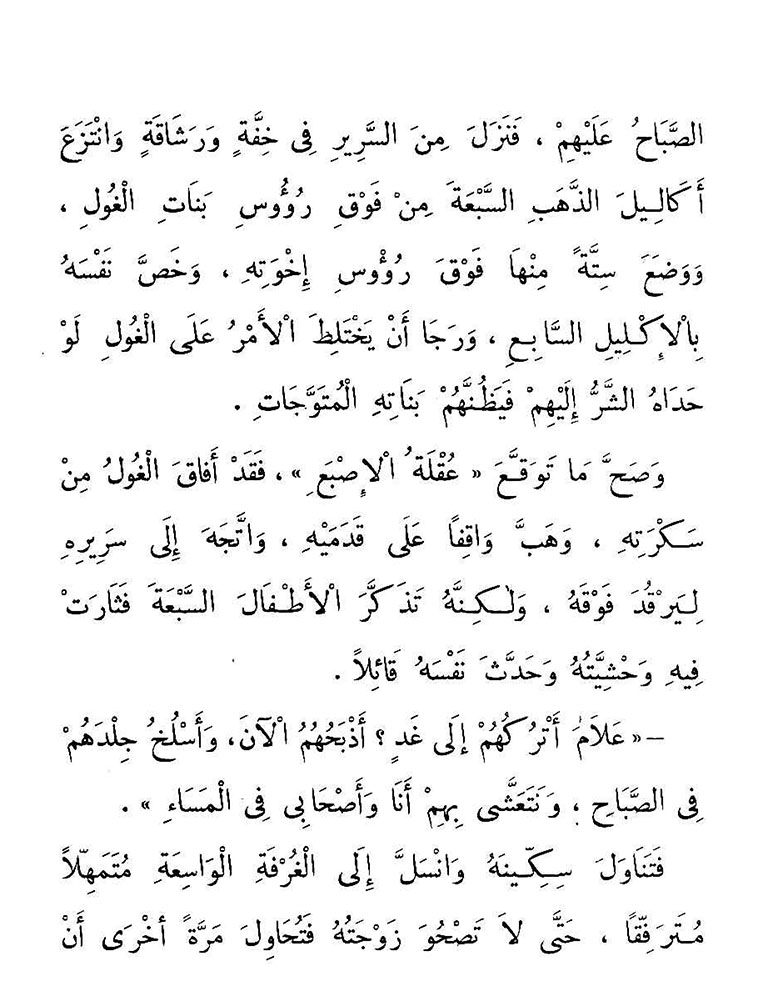 الصَّبَاحُ عَلَيْهِمْ ، فَنَزَلَ مِنَ السَّرِيرِ فِى خِفَّةٍ وَرَشَاقَةٍ وَانْتَزَعَ
أَكَالِيلَ الذَّهَبِ السَّبْعَةَ مِنْ فَوْقِ رُؤُوسِ بَنَاتِ الْغُولِ ،
وَوَضَعَ سِتَّةً مِنْهَا فَوْقَ رُؤُوسِ إِخْوَتِهِ ، وَخَصَّ نَفْسَهُ
بِالْإِكْلِيلِ السَّابِعِ ، وَرَجَا أَنْ يَخْتَلِطَ الْأَمْرُ عَلَى الْغُولِ لَوْ
حَدَاهُ الشَّرُّ إِلَيْهِمْ فَيَظُنَّهُمْ بَنَاتِهِ الْمُتَوَّجَاتِ .
وَصَحَّ مَا تَوَقَّعَ « عُقْلَةُ الْإِصْبَعِ » ، فَقَدْ أَفَاقَ الْغُولُ مِنْ
سَكْرَتِهِ ، وَهَبَّ وَاقِفًا عَلَى قَدَمَيْهِ ، وَاتَّجَهَ إِلَى سَرِيرِهِ
لِيَرْقُدَ فَوْقَهُ ، وَلٰكِنَّهُ تَذَكَّرَ الْأَطْفَالَ السَّبْعَةَ فَثَارَتْ
فِيهِ وَحْشِيَّتُهُ وَحَدَّثَ نَفْسَهُ قَائِلاً .
–« عَلَامَ أَتْرُكُهُمْ إِلَى غَدٍ ؟ أَذْبَحُهُمُ الْآنَ، وَأَسْلُخُ جِلْدَهُمْ
فِى الصَّبَاحِ ، وَنَتَعَشَّى بِهِمْ أَنَا وَأَصْحَابِى فِى الْمَسَاءِ » .
فَتَنَاوَلَ سِكِّينَهُ وَانْسَلَّ إِلَى الْغُرْفَةِ الْوَاسِعَةِ مُتَمَهِّلاً
مُتَرَفِّقًا ، حَتَّى لاَ تَصْحُوَ زَوْجَتُهُ فَتُحَاوِلَ مَرَّةً أُخْرَى أَنْ